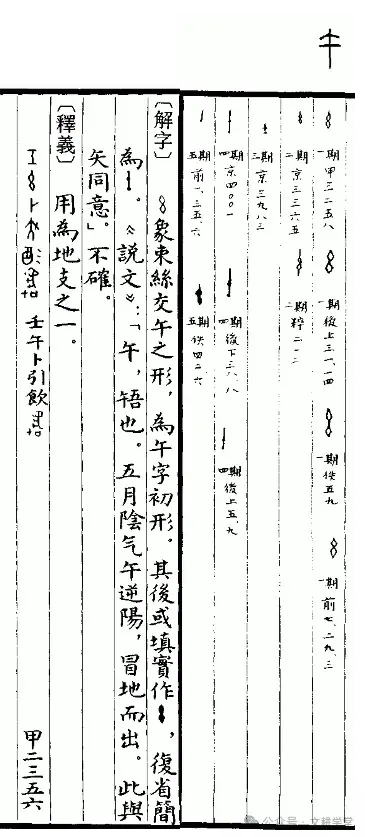 一期 甲三二五八 一期 後上三一、一四 一期 佚五九 一期 前七、二九、三
二期 京三三六五 二期 粹二一二
三期 京三九八三
四期 京四〇〇一 四期 後下三八、八 四期 後上五、九
五期 前一、三五、六 五期 佚四二六
〔解字〕 象束絲交午之形，為午字初形。其後或填實作，復省簡
為。《說文》：「午，啎也。五月陰气午逆陽，冒地而出。此與
矢同意」。不確。
〔釋義〕 用為地支之一。
壬午卜引飲 甲二三五六
公众号·文耕学堂